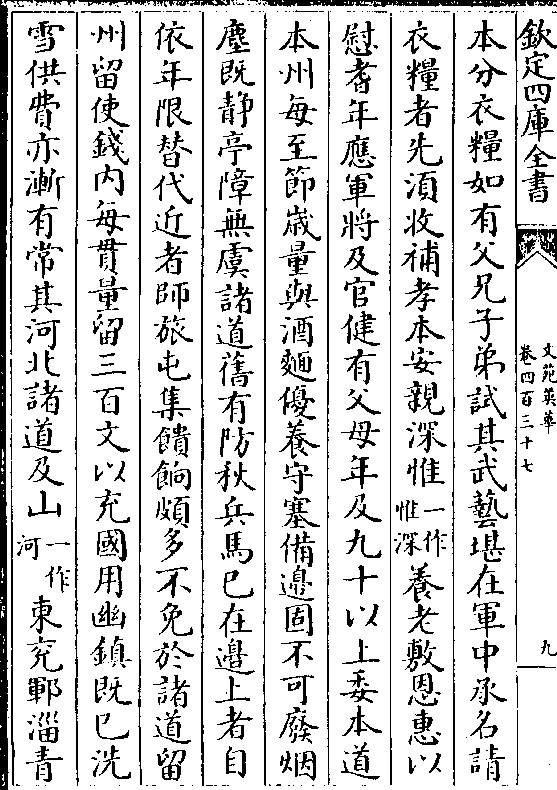 欽定四庫全書
文苑英華
卷四百三十七
九
本分衣糧如有父兄子弟試其武藝堪在軍中承名請
衣糧者先須收補孝本安親深惟一作惟深養老敷恩惠以
慰耆年應軍將及官健有父母年及九十以上委本道
本州每至節嵗量與酒麵優養守塞備邊固不可廢烟
塵既静亭障無虞諸道舊有防秋兵馬已在邊上者自
依年限替代近者師旅屯集饋餉頗多不免於諸道留
州留使錢内每貫量留三百文以充國用幽鎮既已洗
雪供費亦漸有常其河北諸道及山一作河東兖鄆淄青